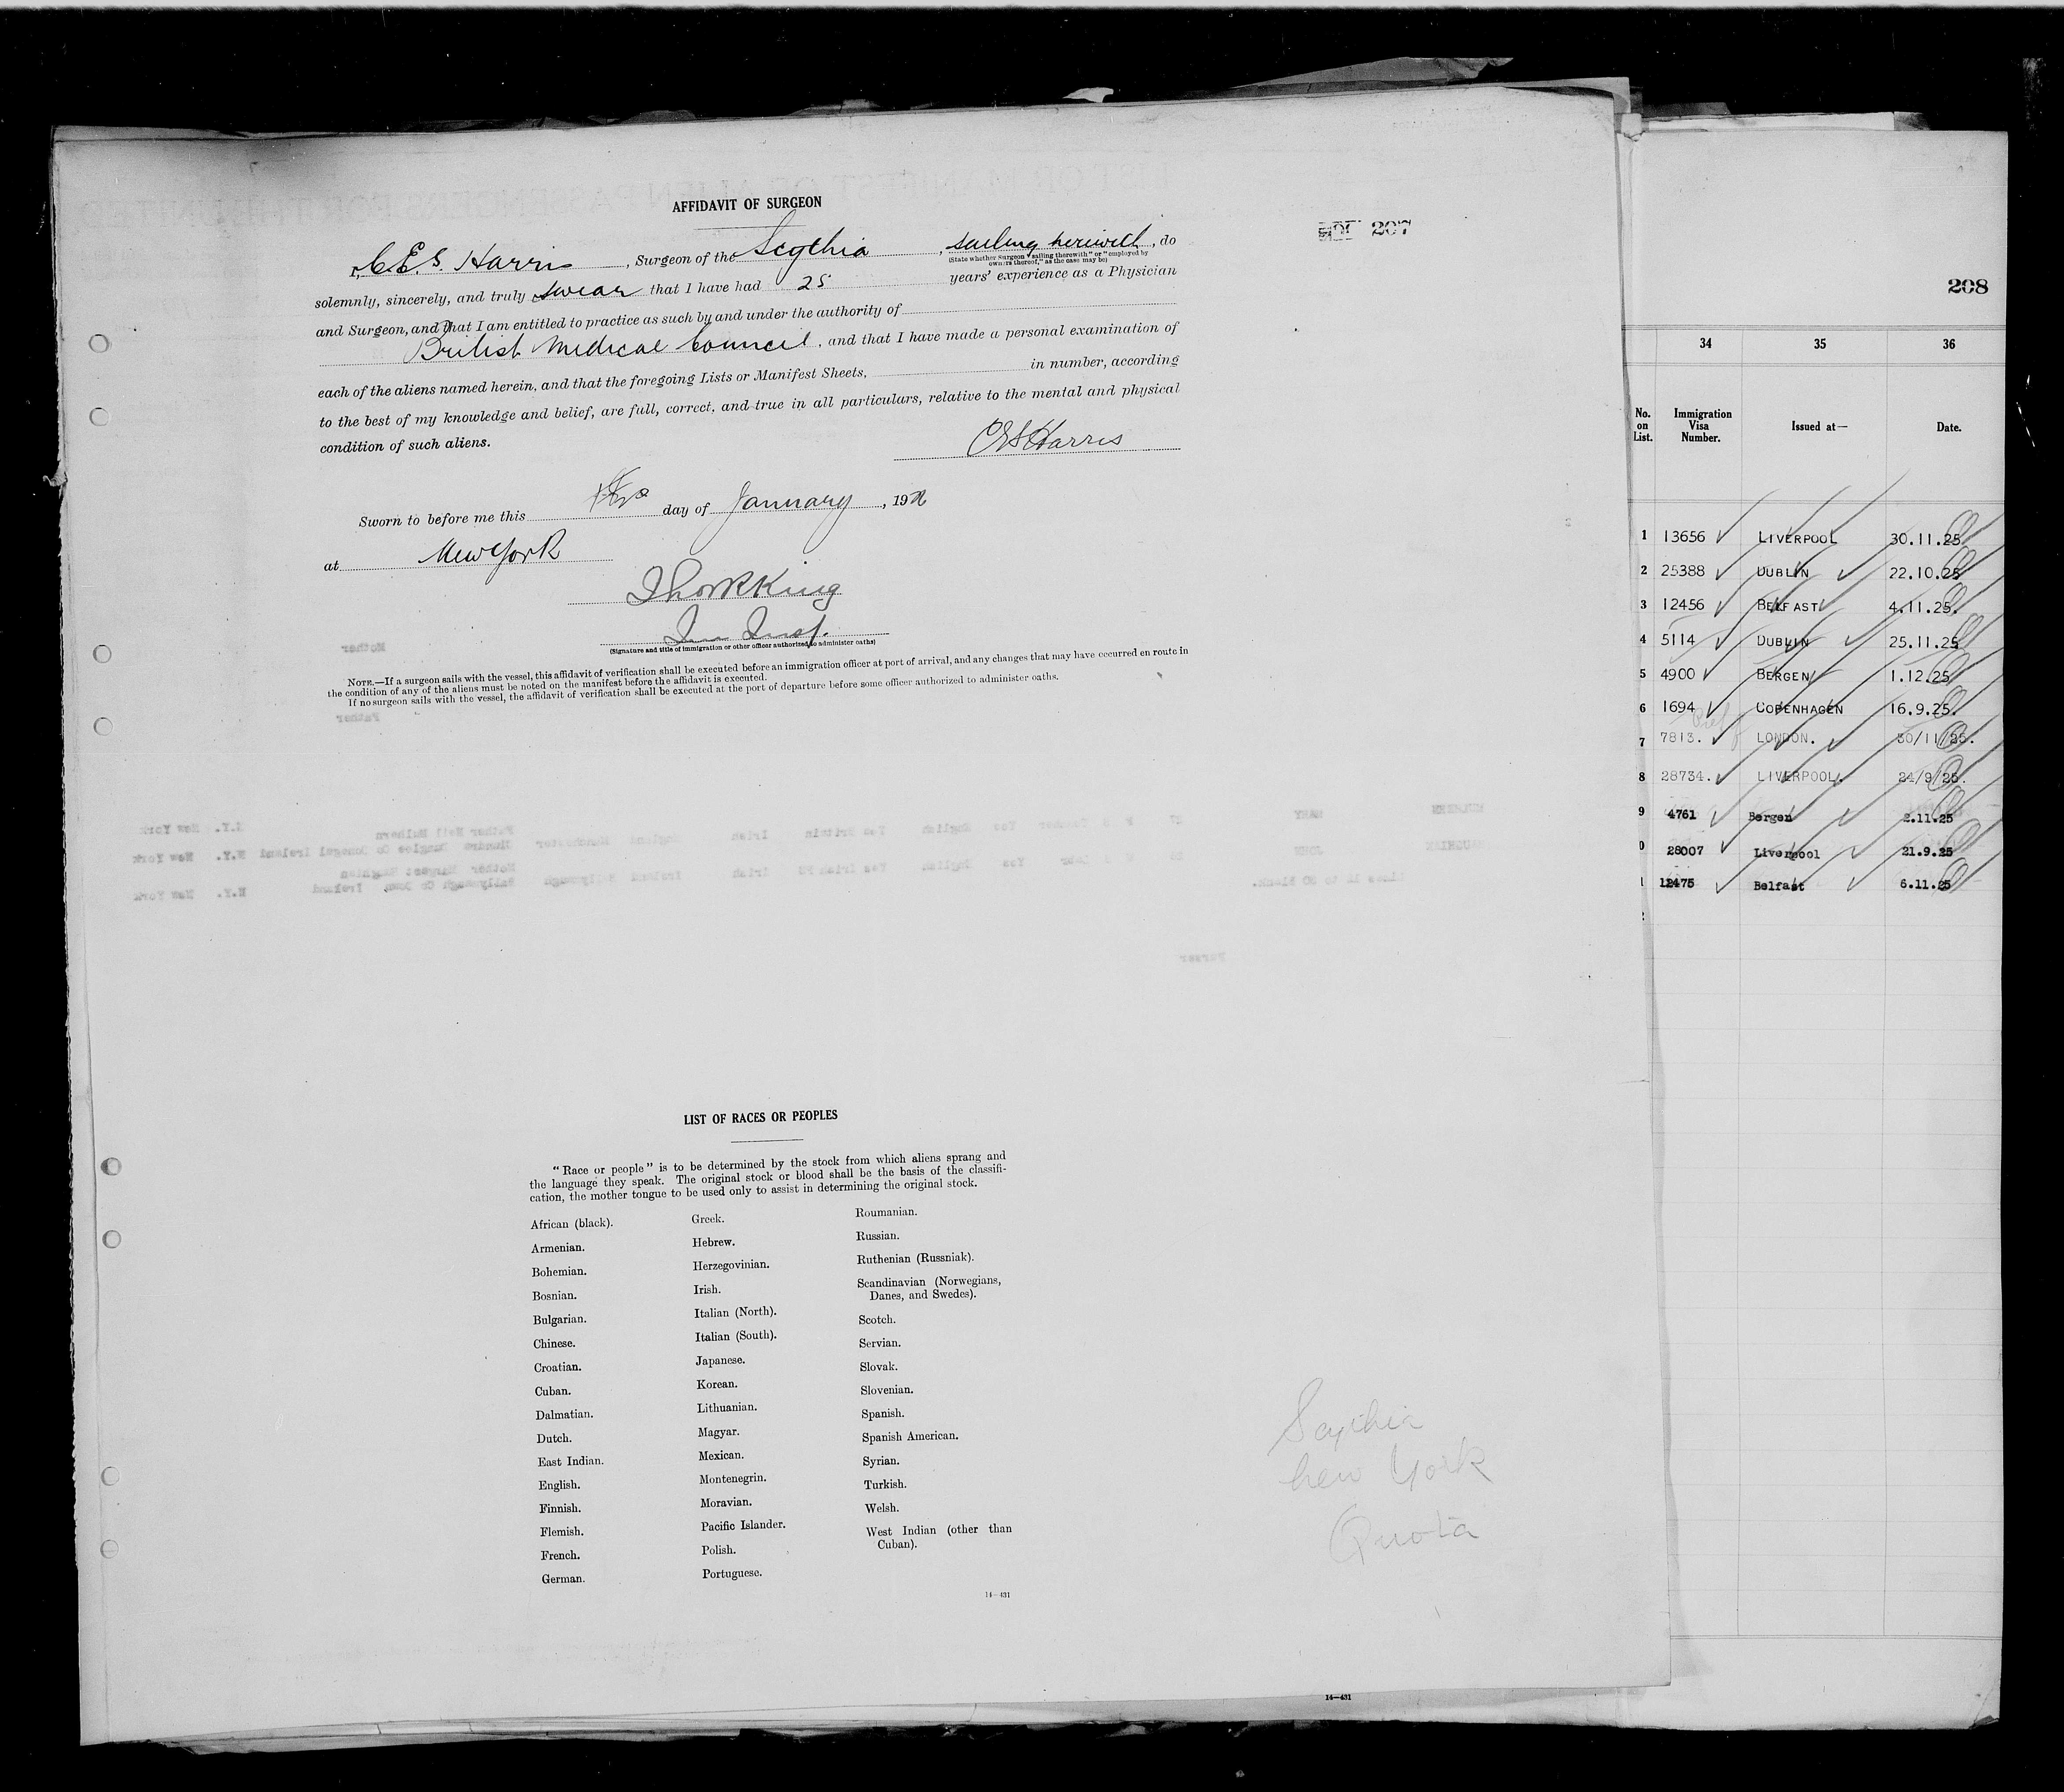 AFFIDAVIT OF SURGEON
207
I, C.E.S. Harris, Surgeon of the Scythia, sailing herewith, do
(State whether Surgeon "sailing therewith" or "employed by
owners thereof," as the case may be)
solemnly, sincerely, and truly swear that I have had 25 years' experience as a Physician
and Surgeon, and that I am entitled to practice as such by and under the authority of
British Medical Council, and that I have made a personal examination of
each of the aliens named herein, and that the foregoing Lists or Manifest Sheets, in number, according
to the best of my knowledge and belief, are full, correct, and true in all particulars, relative to the mental and physical
condition of such aliens.
CES Harris
Sworn to before me this day of January, 192
at New York
(Signature and title of immigration or other officer authorized to administer oaths)
NOTE.—If a surgeon sails with the vessel, this affidavit of verification shall be executed before an immigration officer at port of arrival, and any changes that may have occurred en route in
the condition of any of the aliens must be noted on the manifest before the affidavit is executed.
If no surgeon sails with the vessel, the affidavit of verification shall be executed at the port of departure before some officer authorized to administer oaths.
LIST OF RACES OR PEOPLES
"Race or people" is to be determined by the stock from which aliens sprang and
the language they speak. The original stock or blood shall be the basis of the classifi-
cation, the mother tongue to be used only to assist in determining the original stock.
African (black).
Armenian.
Bohemian.
Bosnian.
Bulgarian.
Chinese.
Croatian.
Cuban.
Dalmatian.
Dutch.
East Indian.
English.
Finnish.
Flemish.
French.
German.
Greek.
Hebrew.
Herzegovinian.
Irish.
Italian (North).
Italian (South).
Japanese.
Korean.
Lithuanian.
Magyar.
Mexican.
Montenegrin.
Moravian.
Pacific Islander.
Polish.
Portuguese.
Roumanian.
Russian.
Ruthenian (Russniak).
Scandinavian (Norwegians,
Danes, and Swedes).
Scotch.
Servian.
Slovak.
Slovenian.
Spanish.
Spanish American.
Syrian.
Turkish.
Welsh.
West Indian (other than
Cuban).
14—431
Scythia
New York
Quota
14—431
208
34 35 36
No. on List. Immigration Visa Number. Issued at— Date.
1 13656 LIVERPOOL 30.11.25
2 25388 DUBLIN 22.10.25
3 12456 BELFAST 4.11.25.
4 5114 DUBLIN 25.11.25
5 4900 BERGEN 1.12.25
6 1694 COPENHAGEN 16.9.25.
7 7813. LONDON. 30/11/25.
8 28734. LIVERPOOL. 24/9/25.
9 4761 Bergen 2.11.25
0 28007 Liverpool 21.9.25
1 12475 Belfast 6.11.25